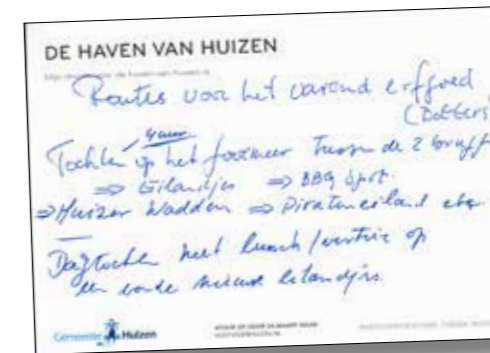 DE HAVEN VAN HUIZEN
Routes voor het varend erfgoed
(Botters)
4 uur
Tochten op het Gooimeer tussen de 2 bruggen
⇒ Eilandjes ⇒ BBQ spot.
⇒ Huizer Wadden ⇒ Pirateneiland etc.
Dagtochten met lunch / op
een vande nieuwe eilandjes.
Gemeente Huizen